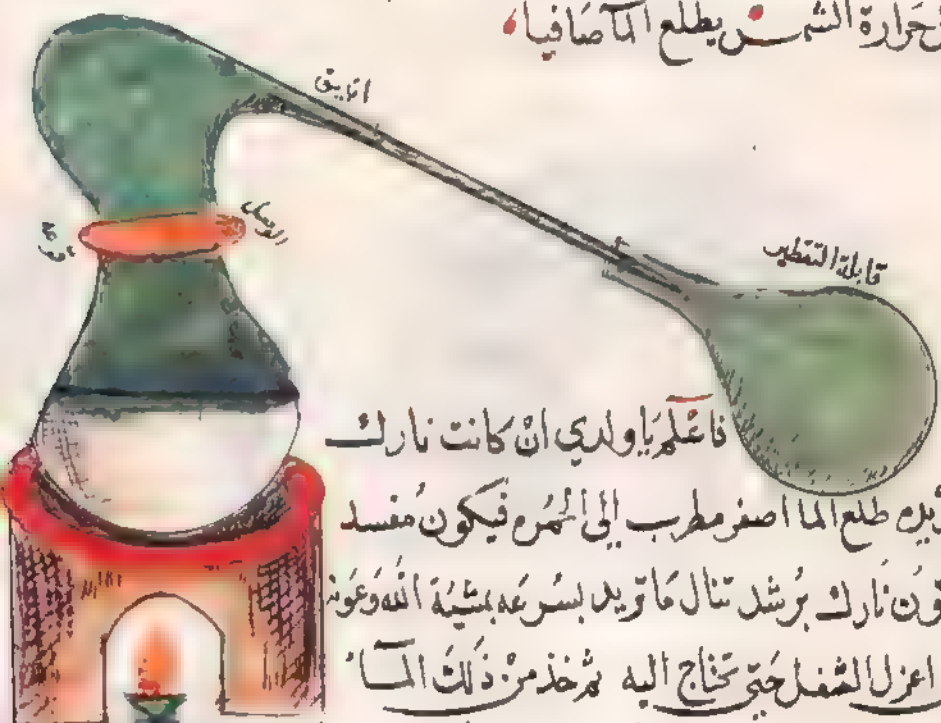 حرارة الشمس يطلع المآ صافيا
انبيق
قابلة التقطير
فاعلم يا ولدي ان كانت نارك
طلع الما اصفر مطرب إلى الحمره فيكون مُفسد
نارك برشد تنال ما تريد بسرعه بمشية الله وعونه
اعزل الثفل حتى تحتاج اليه ثم خذ من ذلك المآ